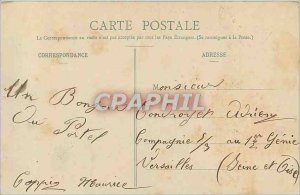 CARTE POSTALE
La Correspondance au recto n'est pas acceptée par tous les Pays Étrangers. (Se renseigner à la Poste)
CORRESPONDANCE
ADRESSE
Monsieur
Un Bonjour
Du Portel
Adrien
Compagnie 5/3 au 1er Génie
Versailles (Seine et Oise)
Maurice
PRPhoto.com